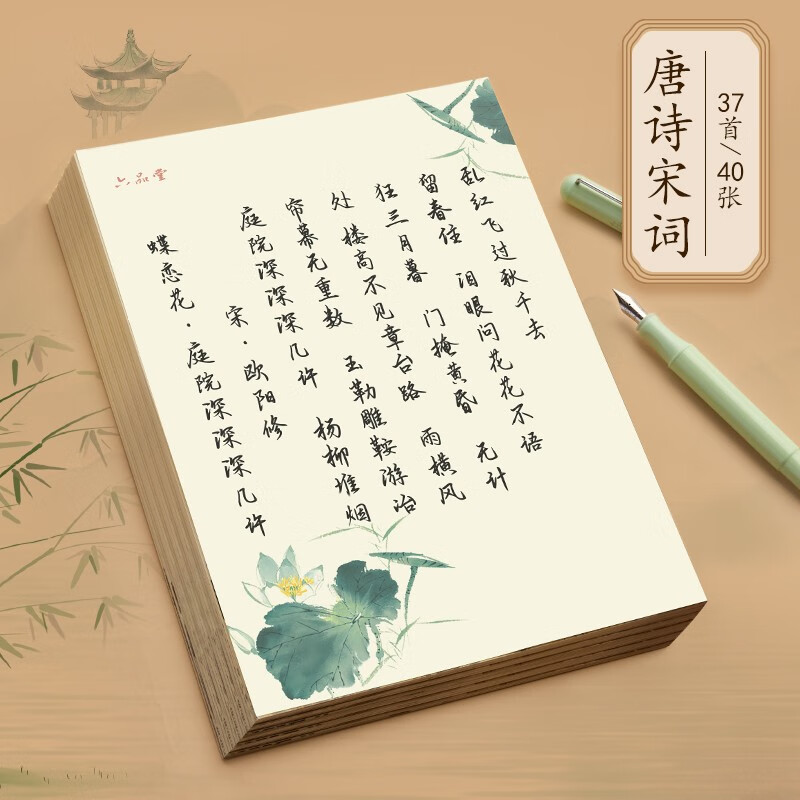 六品堂
蝶恋花·庭院深深深几许
宋·欧阳修
庭院深深深几许 杨柳堆烟
帘幕无重数 玉勒雕鞍游冶
处 楼高不见章台路 雨横风
狂三月暮 门掩黄昏 无计
留春住 泪眼问花花不语
乱红飞过秋千去
唐诗宋词
37首/40张